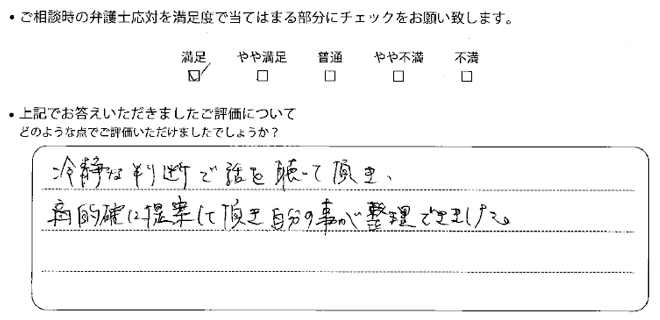 • ご相談時の弁護士応対を満足度で当てはまる部分にチェックをお願い致します。
満足 やや満足 普通 やや不満 不満
☑ □ □ □ □
• 上記でお答えいただきましたご評価について
どのような点でご評価いただけましたでしょうか?
冷静な判断で話を聴いて頂き、
的確に提案して頂き自分の事が整理できました。